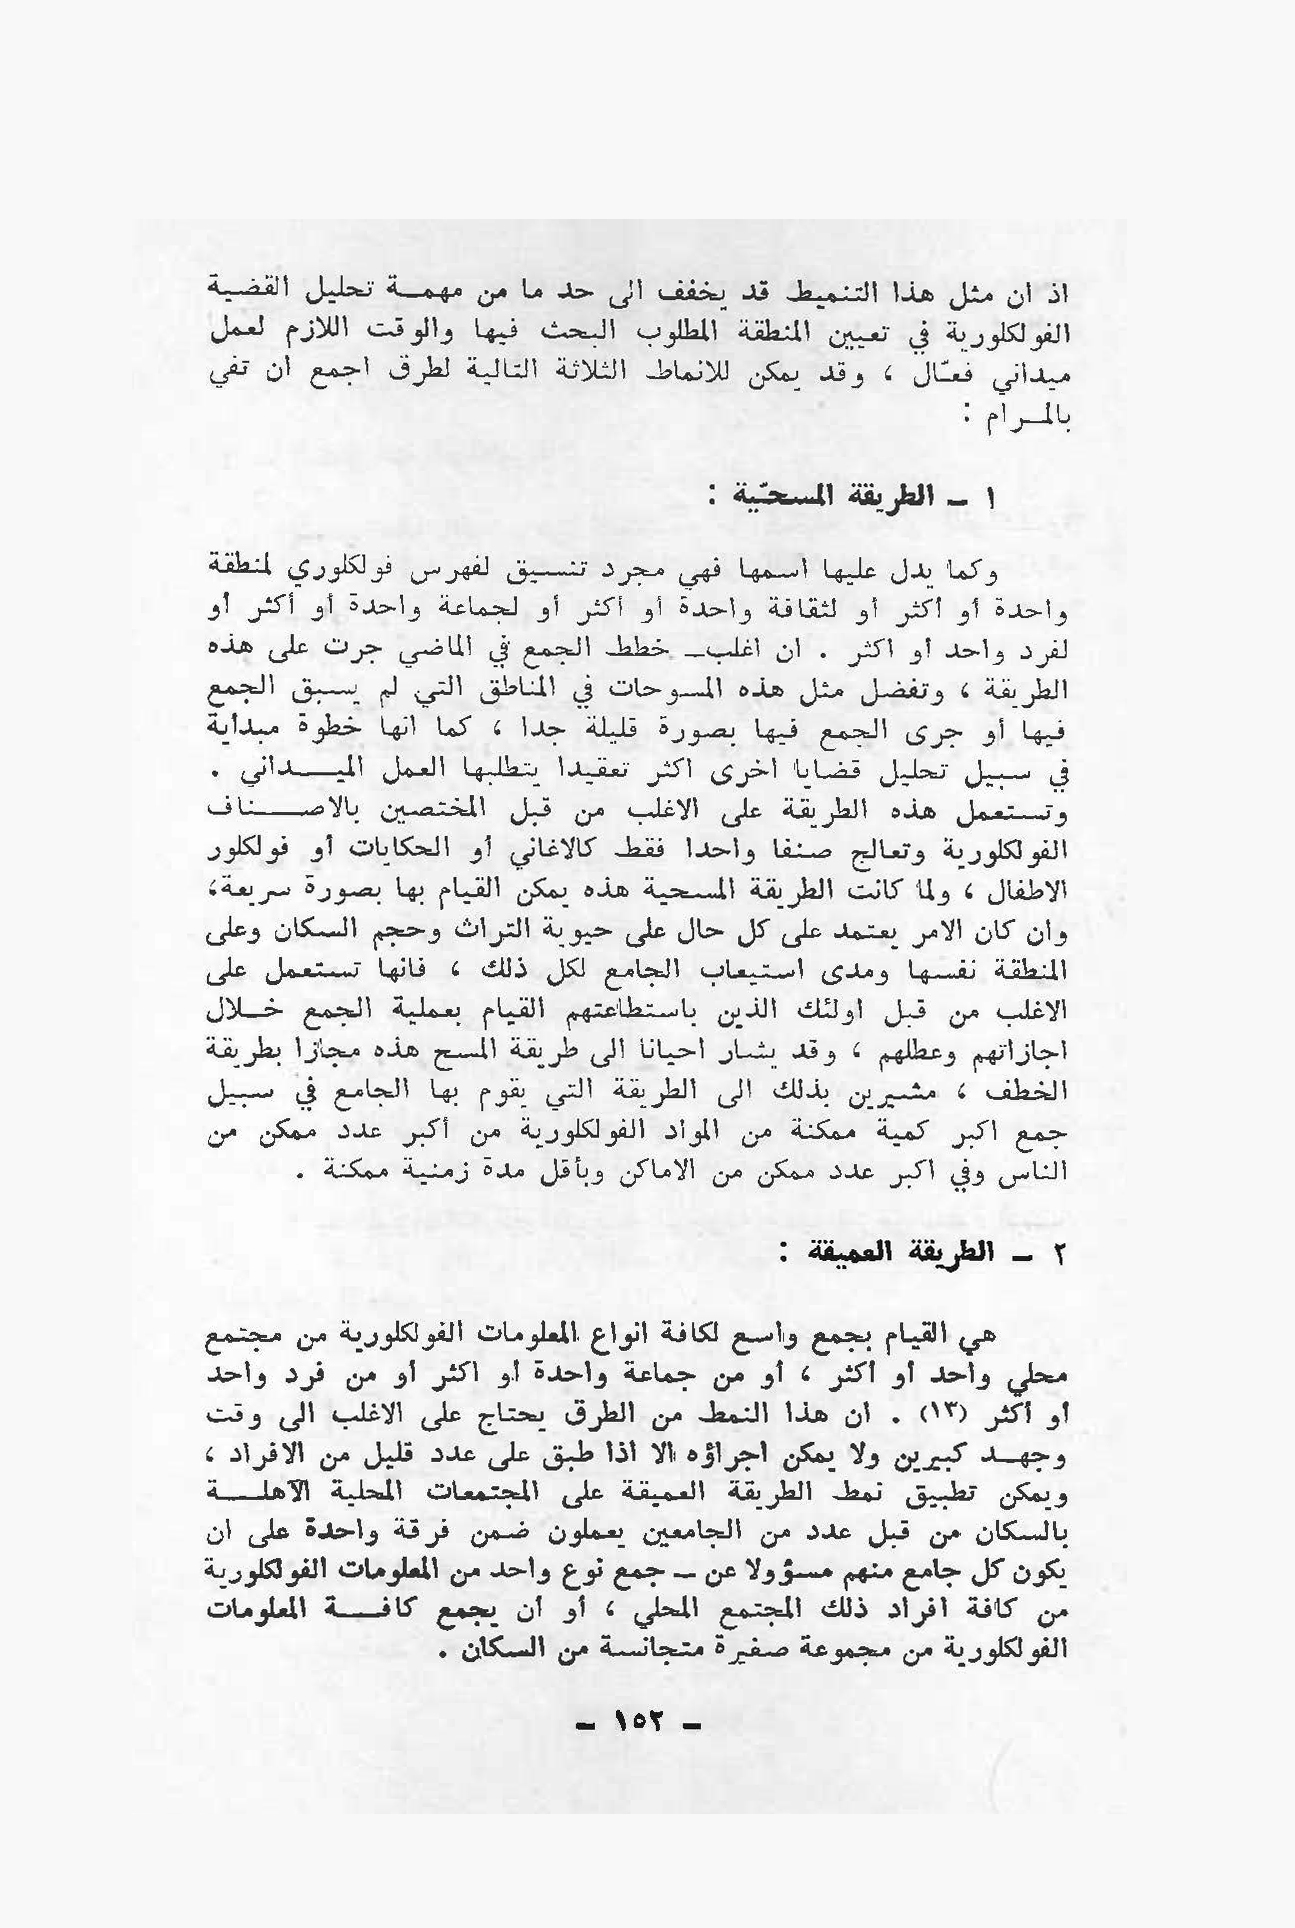 اذ ان مثل هذا التنميط قد يخفف الى حد ما من مهمـــة تحليل القضية
الفولكلورية في تعيين المنطقة المطلوب البحث فيها والوقت اللازم لعمل
ميداني فعـّال ، وقد يمكن للانماط الثلاثة التالية لطرق اجمع ان تفي
بالمــرام :
١ ــ الطريقة المسحـّية :
وكما يدل عليها اسمها فهي مجرد تنسيق لفهرس فولكلوري لمنطقة
واحدة أو أكثر أو لثقافة واحدة أو أكثر أو لجماعة واحدة أو أكثر أو
لفرد واحد أو اكثر . ان اغلبــ خطط الجمع في الماضي جرت على هذه
الطريقة ، وتفضل مثل هذه المسوحات في المناطق التي لم يسبق الجمع
فيها أو جرى الجمع فيها بصورة قليلة جدا ، كما انها خطوة مبدأية
في سبيل تحليل قضايا اخرى اكثر تعقيدا يتطلبها العمل الميـــداني .
وتستعمل هذه الطريقة على الاغلب من قبل المختصين بالاصـــناف
الفولكلورية وتعالج صنفا واحدا فقط كالاغاني أو الحكايات أو فولكلور
الاطفال ، ولما كانت الطريقة المسحية هذه يمكن القيام بها بصورة سريعة،
وان كان الامر يعتمد على كل حال على حيوية التراث وحجم السكان وعلى
المنطقة نفسها ومدى استيعاب الجامع لكل ذلك ، فانها تستعمل على
الاغلب من قبل اولئك الذين باستطاعتهم القيام بعملية الجمع خــلال
اجازاتهم وعطلهم ، وقد يشار احيانا الى طريقة المسح هذه مجازا بطريقة
الخطف ، مشيرين بذلك الى الطريقة التي يقوم بها الجامع في سبيل
جمع اكبر كمية ممكنة من المواد الفولكلورية من أكبر عدد ممكن من
الناس وفي اكبر عدد ممكن من الاماكن وبأقل مدة زمنية ممكنة .
٢ ــ الطريقة العميقة :
هي القيام بجمع واسع لكافة انواع المعلومات الفولكلورية من مجتمع
محلي واحد أو أكثر ، أو من جماعة واحدة أو اكثر أو من فرد واحد
أو أكثر (١٣) . ان هذا النمط من الطرق يحتاج على الاغلب الى وقت
وجهــد كبيرين ولا يمكن اجراؤه الا اذا طبق على عدد قليل من الافراد ،
ويمكن تطبيق نمط الطريقة العميقة على المجتمعات المحلية الآهلـــة
بالسكان من قبل عدد من الجامعين يعملون ضمن فرقة واحدة على ان
يكون كل جامع منهم مسؤولا عن ــ جمع نوع واحد من المعلومات الفولكلورية
من كافة افراد ذلك المجتمع المحلي ، أو أن يجمع كافـــة المعلومات
الفولكلورية من مجموعة صغيرة متجانسة من السكان .
ــ ١٥٢ ــ